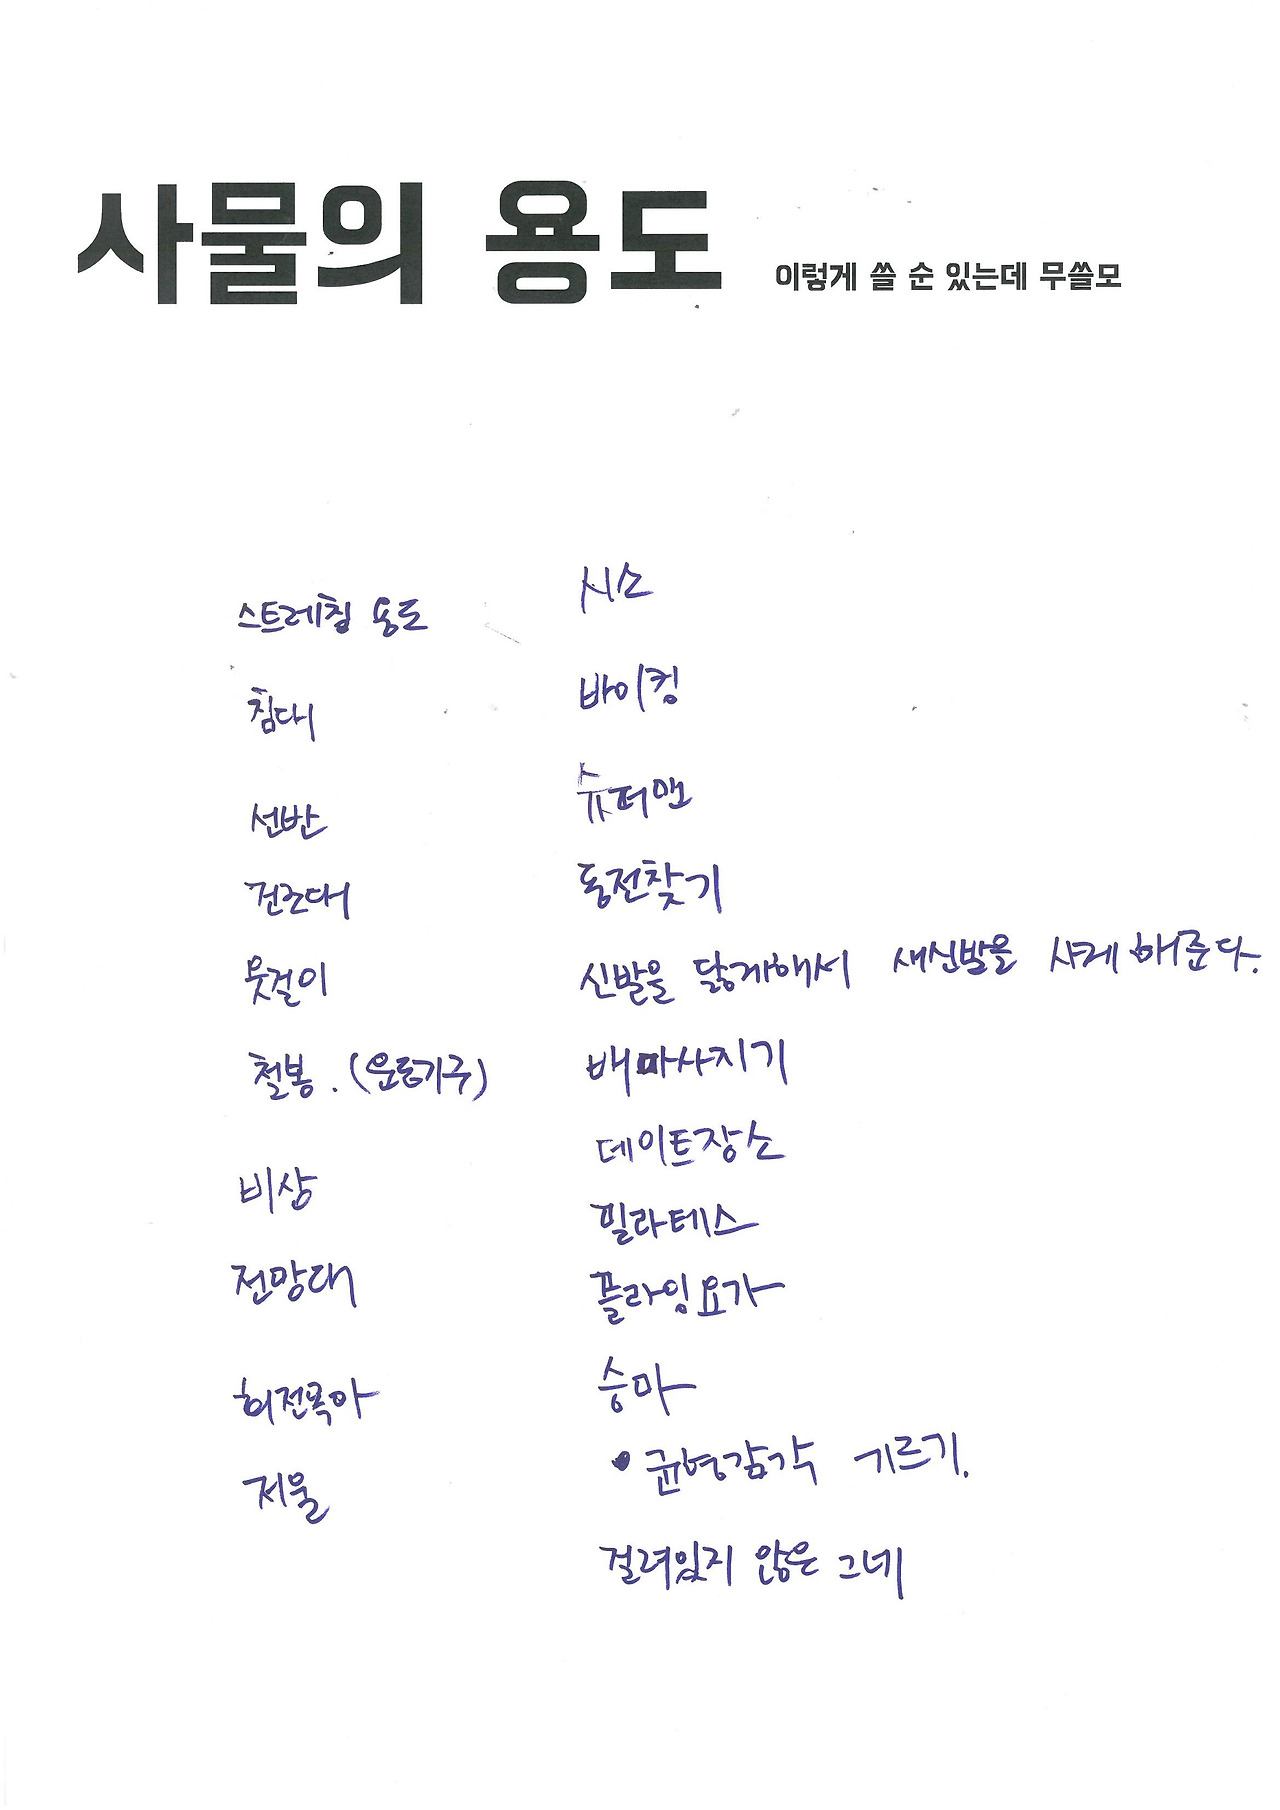 사물의 용도
이렇게 쓸 순 있는데 무쓸모
스트레칭 용도
침대
선반
건조대
옷걸이
철봉. (운동기구)
비상
전망대
회전목마
저울
시소
바이킹
슈퍼맨
동전찾기
신발을 닳게해서 새신발을 사게 해준다.
배마사지기
데이트장소
필라테스
플라잉요가
승마
• 균형감각 기르기.
걸려있지 않은 그네